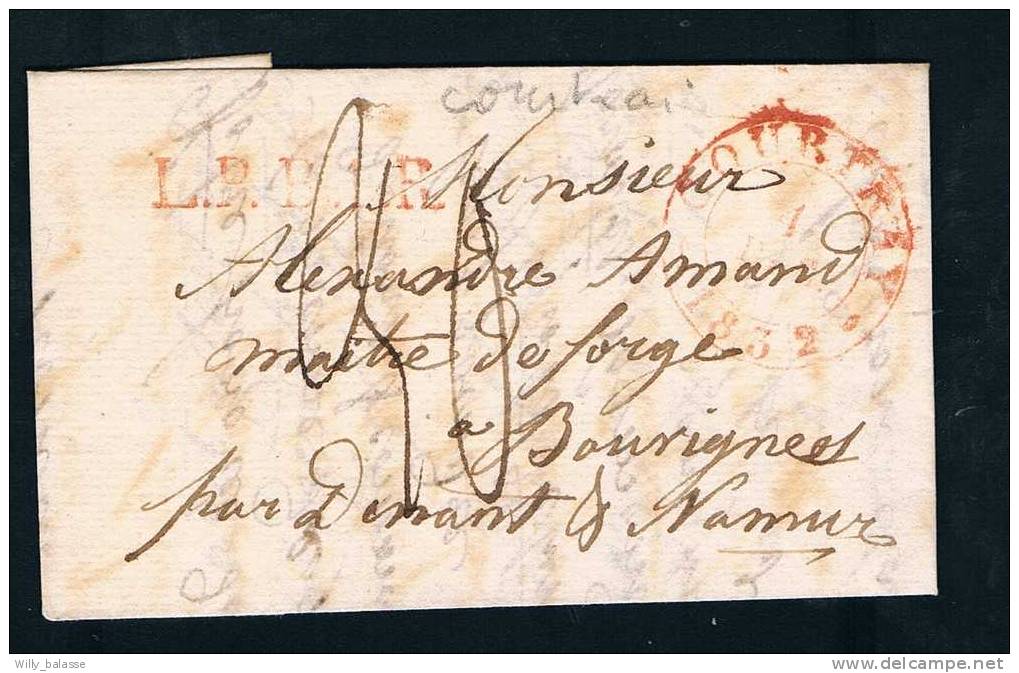 courtrai
L.P.B.I.R
COURTRAY
1
1832
40
Monsieur
Alexandre Amand
maitre de forge
a Bouvignes
par Dinant & Namur
Willy_balasse
delcampe.net